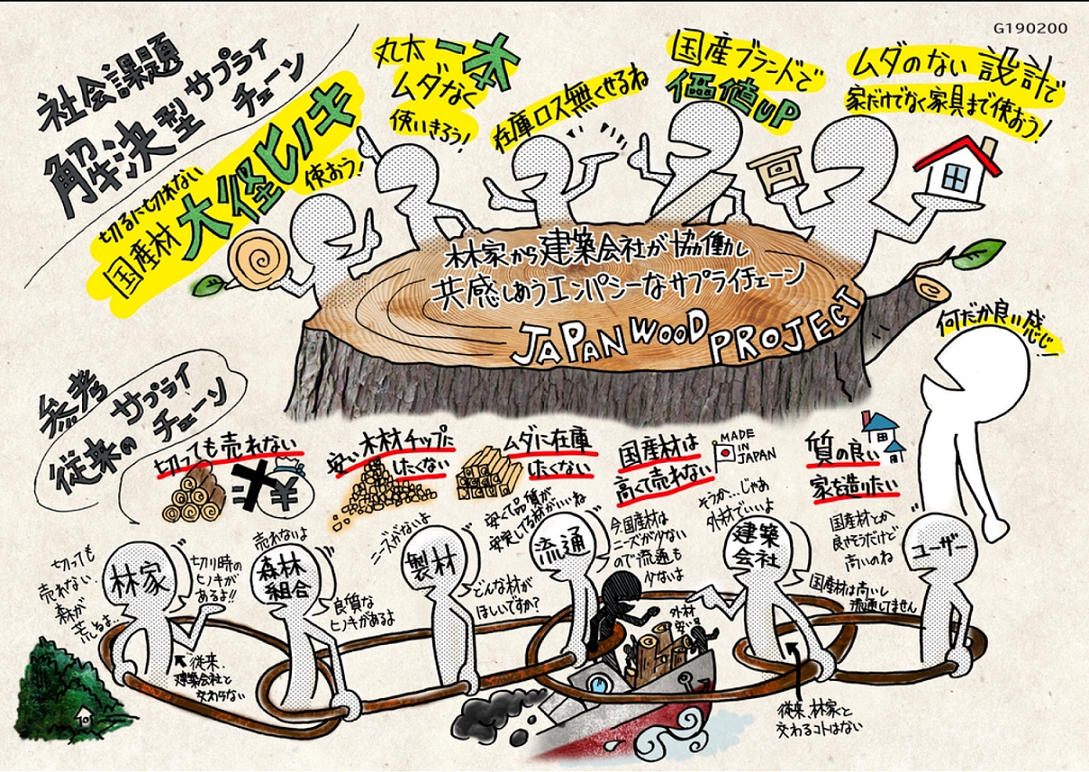 G190200
社会課題
解決型サプライ
チェーン
切るに切れない
国産材大径ヒノキ
使おう!
丸太一本
ムダなく
使いきろう!
在庫ロス無くせるね
国産ブランドで
価値UP
ムダのない設計で
家だけでなく家具まで使おう!
林家から建築会社が協働し
共感しあうエンパシーなサプライチェーン
JAPAN WOOD PROJECT
何だか良い感じ!
参考
従来のサプライ
チェーン
切っても売れない
安い木材チップに
したくない
ムダに在庫
したくない
国産材は
高くて売れない
MADE
IN
JAPAN
質の良い
家を造りたい
切っても
売れない
森が
荒れるよ…
林家
切り時の
ヒノキが
あるよ!!
従来、
建築会社と
交わらない
売れないよ
森林
組合
良質な
ヒノキがあるよ
ニーズがないよ
製材
どんな材が
ほしいですか?
安くて品質が
安定してる材がいいね
流通
今国産材は
ニーズが少ない
ので流通も
少ないよ
外材
安いよ
そうか…じゃあ
外材でいいよ
建築
会社
国産材は高いし
流通してません
従来、林家と
交わるコトはない
国産材とか
良さそうだけど
高いのね
ユーザー